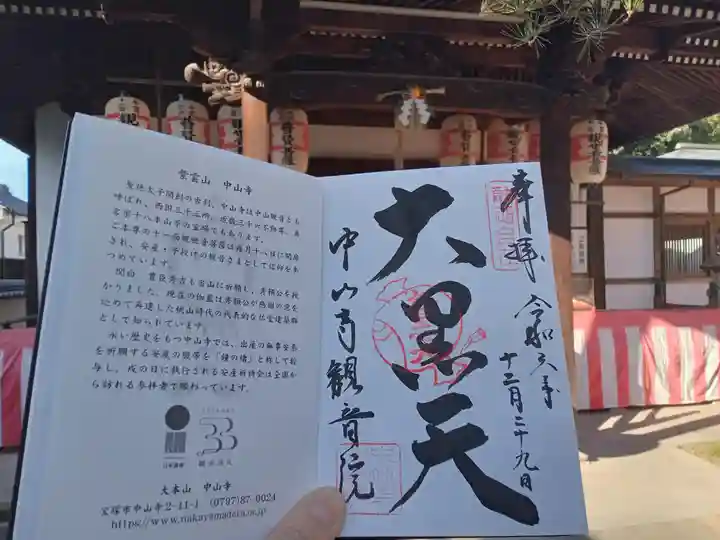 紫雲山 中山寺
聖徳太子開創の古刹、中山寺は中山観音とも
呼ばれ、西国三十三所
ご本尊の十一面観世音菩薩は毎月十八日に開扉
され、安産・子授けの観音さまとして信仰を集
めています。
関白 豊臣秀吉も当山に祈願し、秀頼公を授
かりました。現在の伽藍は秀頼公が
込めて再建した桃山時代の代表的な仏堂建築群
として知られています。
永い歴史をもつ中山寺では、出産の無事安泰
を祈願する安産の腹帯を「鐘の緒」と称して授
与し、戌の日に執行される安産祈祷会は全国か
ら訪れる参拝者で賑わっています。
日本遺産
33
大本山 中山寺
宝塚市中山寺2-11-1 (0797)87-0024
https://www.nakayamadera.or.jp
奉拝
令和六年
十二月二十九日
大黒天
中山寺観音院